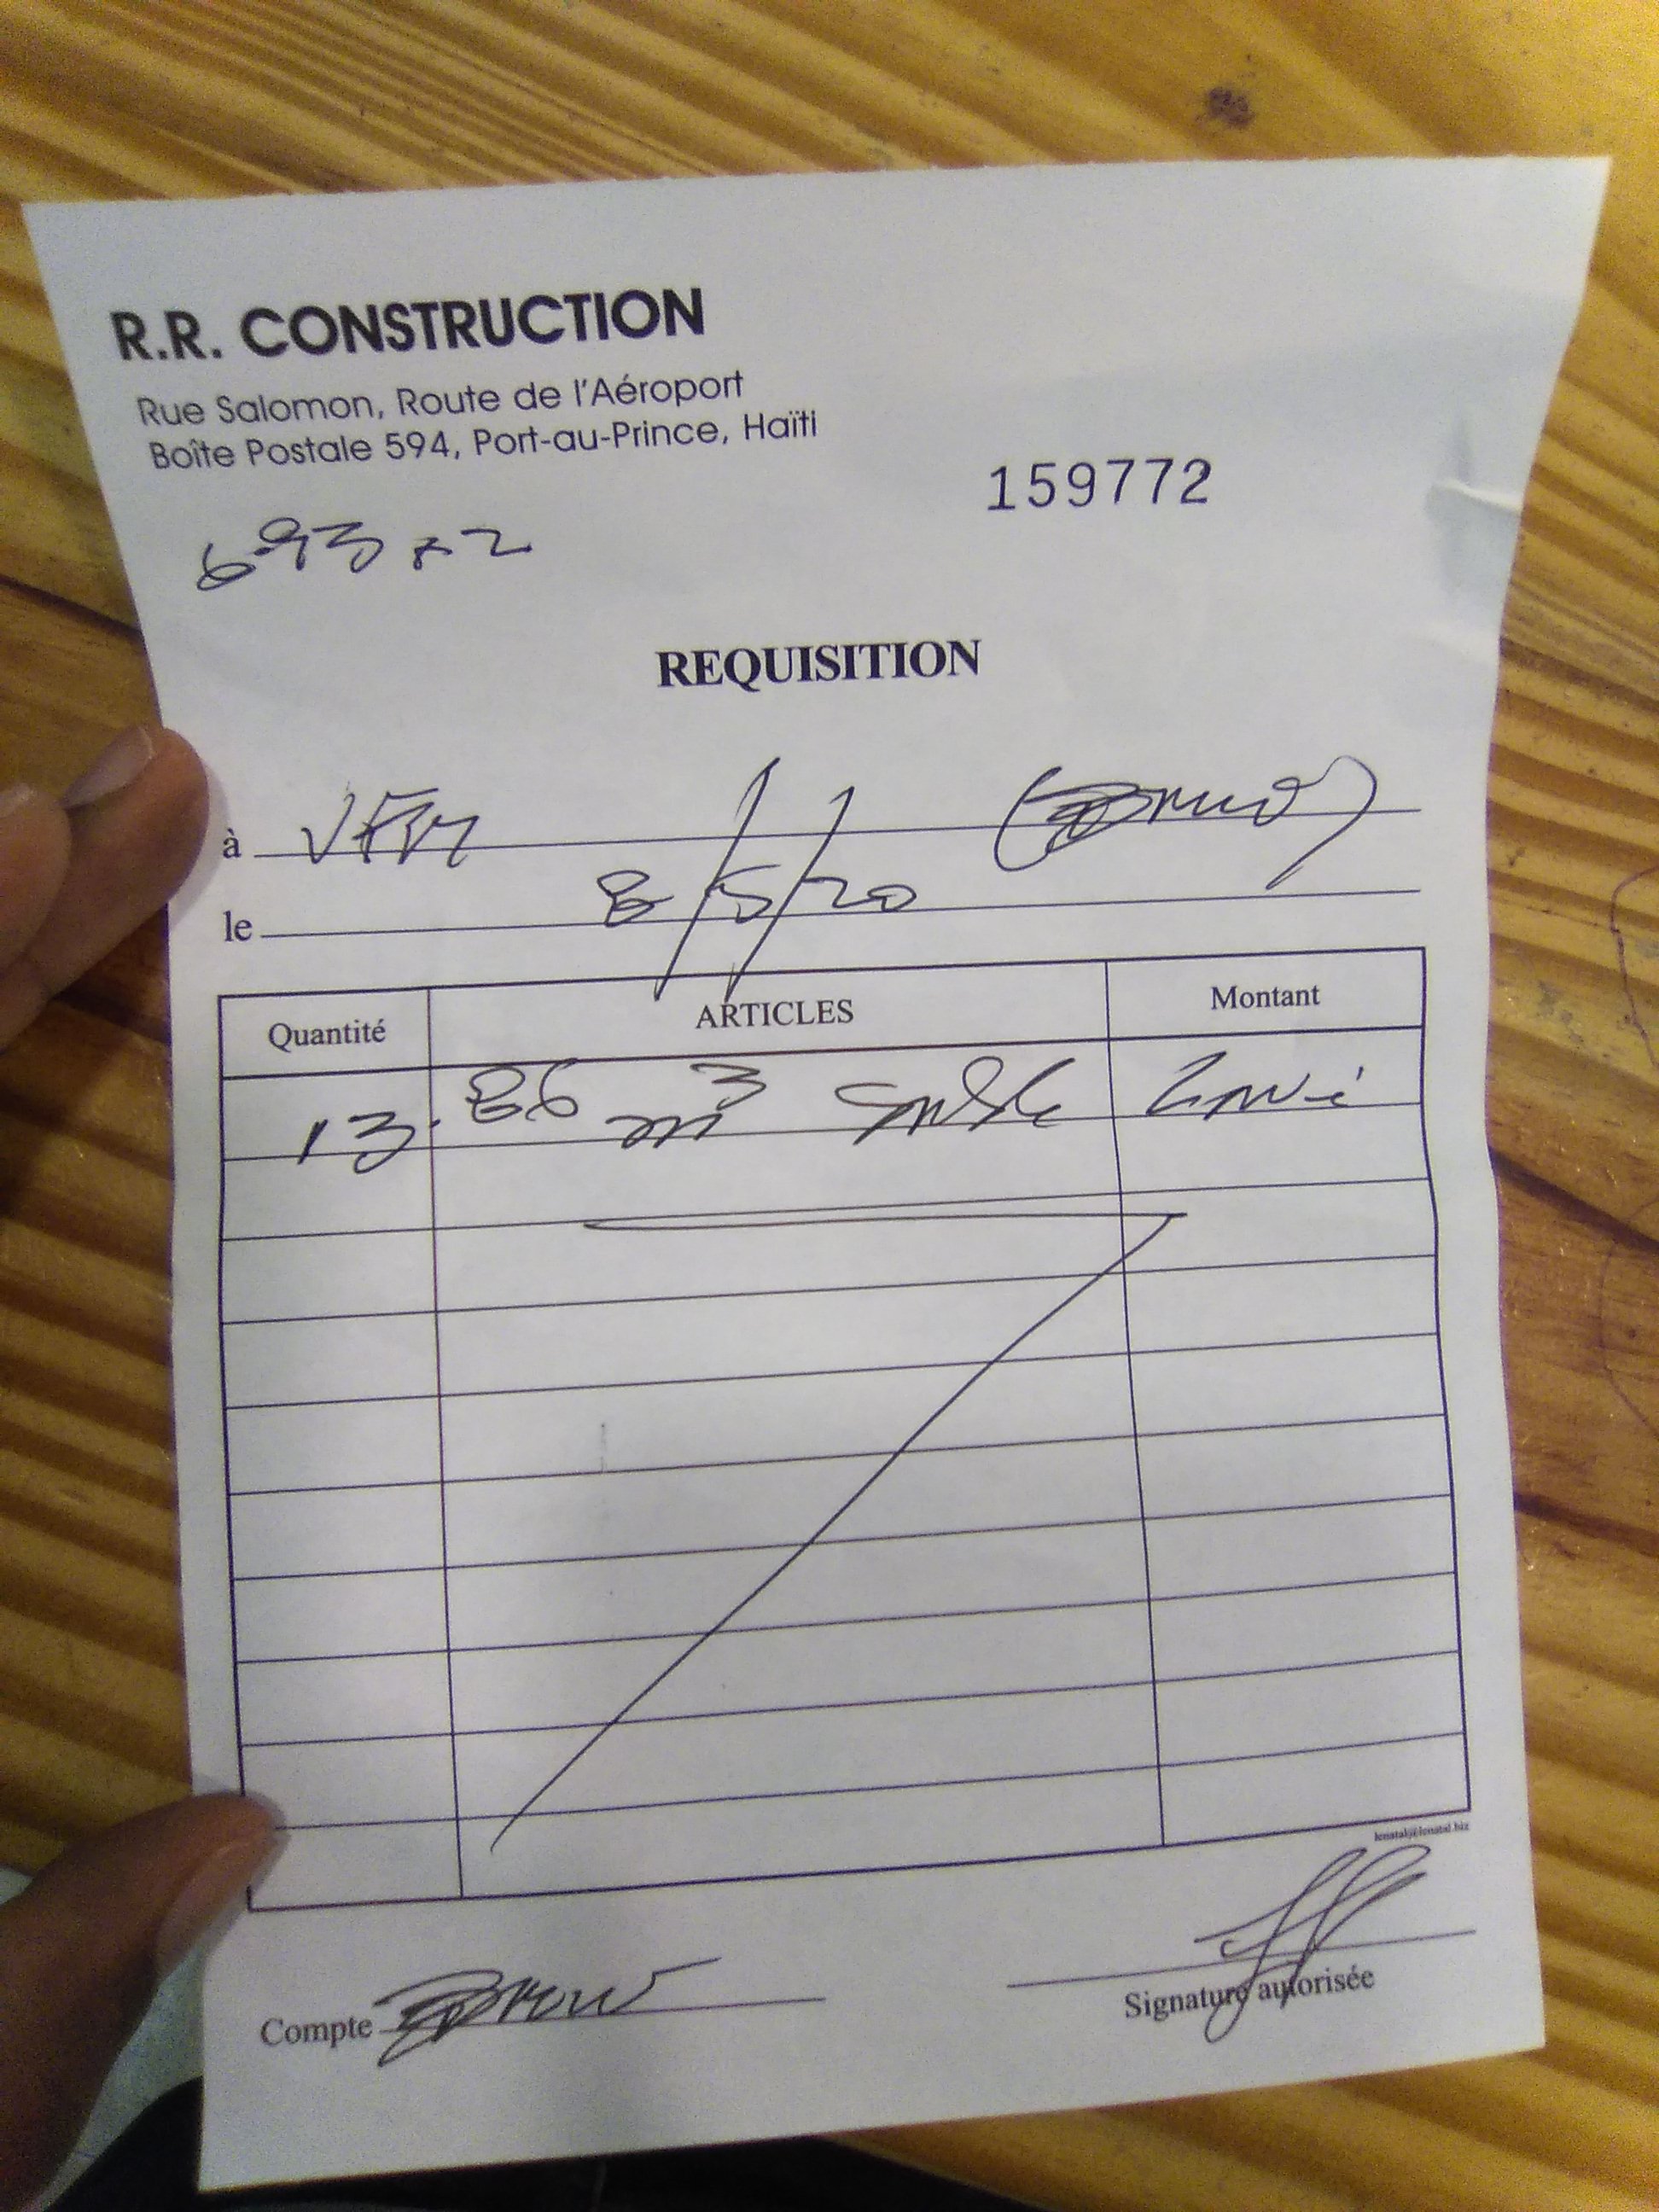 R.R. CONSTRUCTION
Rue Salomon, Route de l'Aéroport
Boîte Postale 594, Port-au-Prince, Haïti
159772
6.93 x 2
REQUISITION
à
le 8/5/20
Quantité ARTICLES Montant
13.86 m³ sable lavé
lenatal@lenatal.biz
Compte
Signature autorisée